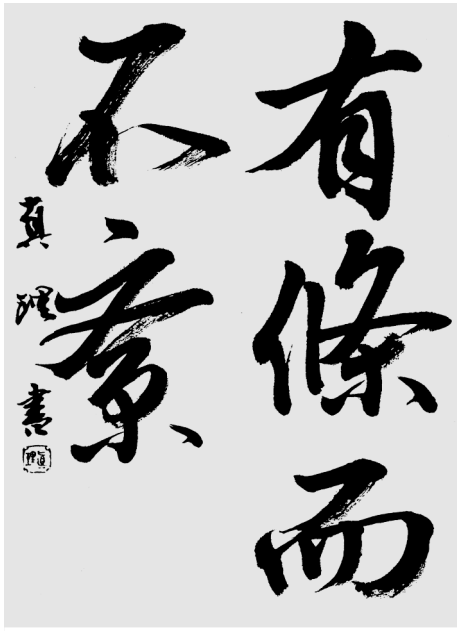 有條而
不紊
真理書
眞理